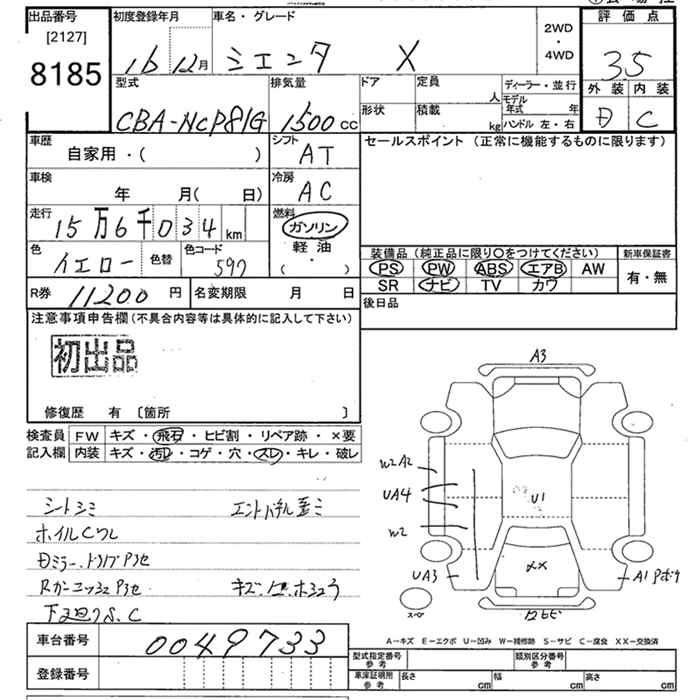 出品番号
[2127]
8185
初度登録年月
16 12月
車名・グレード
シエンタ X
2WD
・
4WD
評価点
35
外装 内装
D C
型式
CBA-NCP81G
排気量
1500cc
ドア
定員
人
形状
積載
kg
ディーラー・並行
モデル年式 年
ハンドル 左・右
車歴
自家用・( )
シフト
AT
車検
年 月( 日)
冷房
AC
走行
15万6千034km
燃料
ガソリン
軽油
( ・ )
色
イエロー
色替
色コード
597
R券
11200円
名変期限 月 日
セールスポイント (正常に機能するものに限ります)
装備品(純正品に限り○をつけてください)
PS PW ABS エアB AW
SR ナビ TV カワ
新車保証書
有・無
後日品
注意事項申告欄(不具合内容等は具体的に記入して下さい)
初出品
修復歴 有 〔箇所 〕
検査員記入欄
FW キズ・飛石・ヒビ割・リペア跡・×要
内装 キズ・汚レ・コゲ・穴・スレ・キレ・破レ
シートシミ
ホイルCワレ
Rガーニッシュ
下廻りS.C
A3
W2 A2
UA4
W2
UA3
U1
XX
A1
A-キズ E-エクボ U-凹み W-補修跡 S-サビ C-腐食 XX-交換済
車台番号
0049733
登録番号
型式指定番号 参考
類別区分番号 参考
車庫証明用 参考
長さ cm
幅 cm
高さ cm